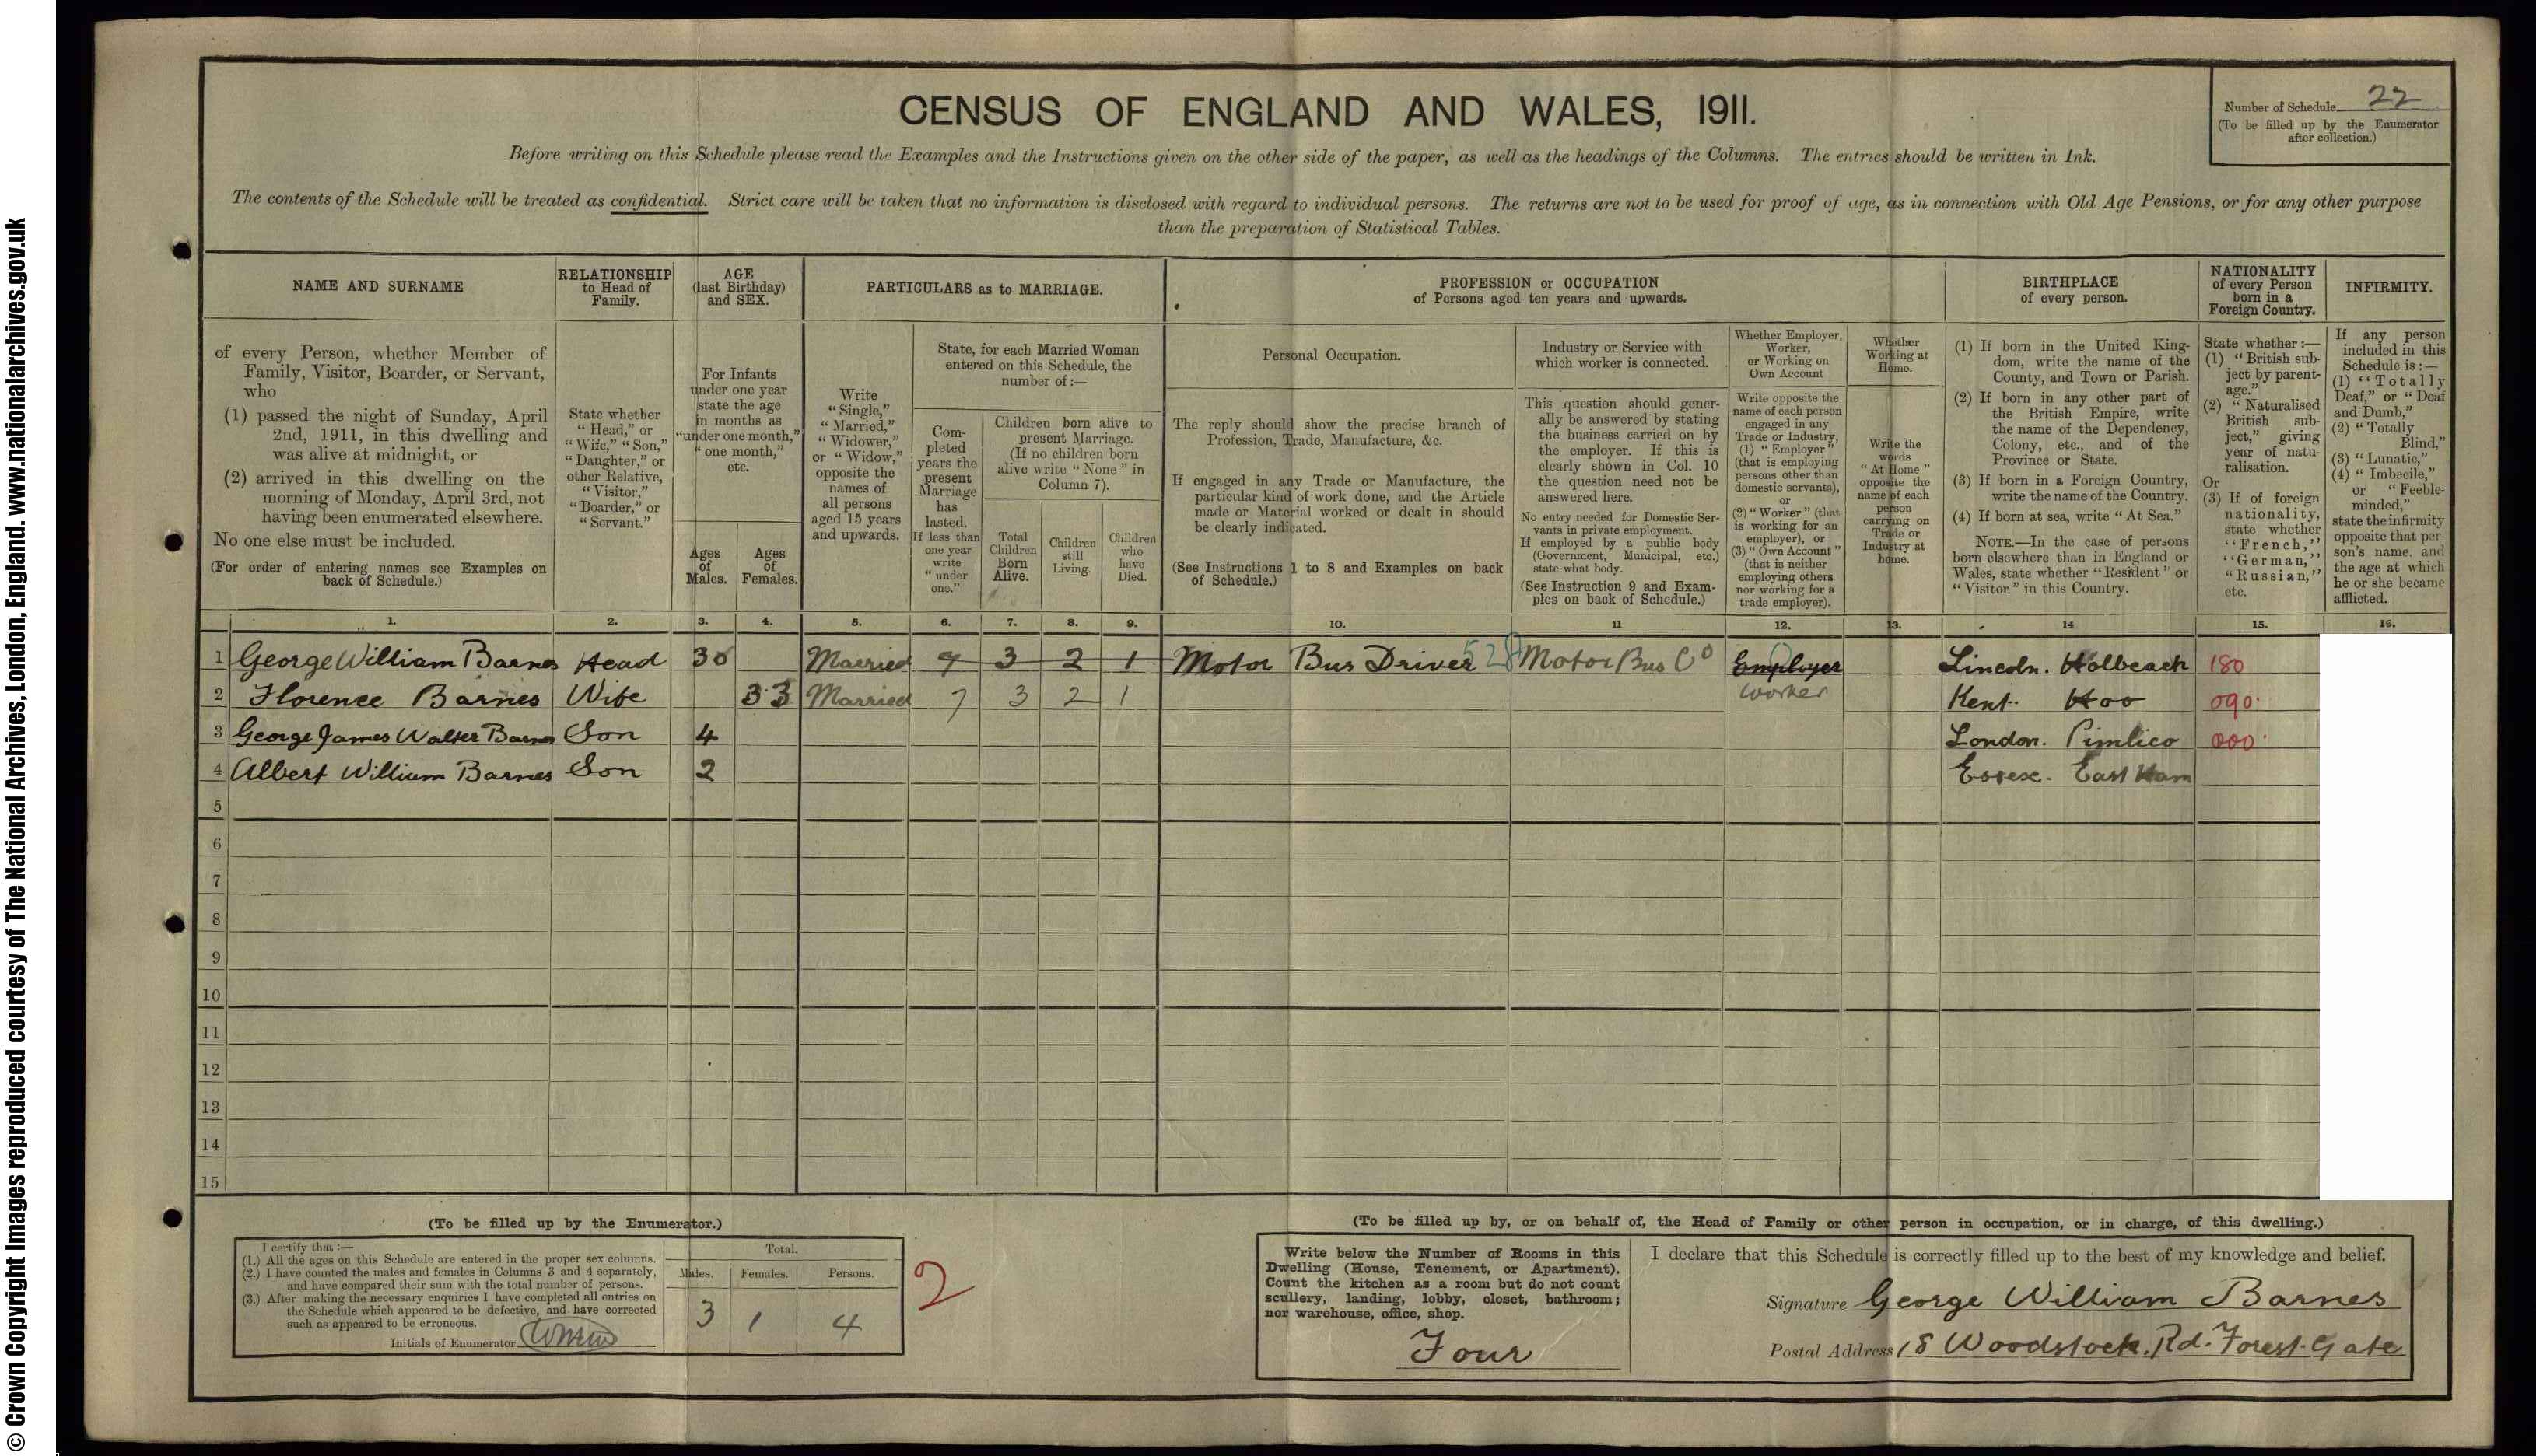 © Crown Copyright Images reproduced courtesy of The National Archives, London, England. www.nationalarchives.gov.uk
CENSUS OF ENGLAND AND WALES, 1911.
Number of Schedule 22
(To be filled up by the Enumerator
after collection.)
Before writing on this Schedule please read the Examples and the Instructions given on the other side of the paper, as well as the headings of the Columns. The entries should be written in Ink.
The contents of the Schedule will be treated as confidential. Strict care will be taken that no information is disclosed with regard to individual persons. The returns are not to be used for proof of age, as in connection with Old Age Pensions, or for any other purpose
than the preparation of Statistical Tables.
NAME AND SURNAME
of every Person, whether Member of
Family, Visitor, Boarder, or Servant,
who
(1) passed the night of Sunday, April
2nd, 1911, in this dwelling and
was alive at midnight, or
(2) arrived in this dwelling on the
morning of Monday, April 3rd, not
having been enumerated elsewhere.
No one else must be included.
(For order of entering names see Examples on
back of Schedule.)
RELATIONSHIP
to Head of
Family.
State whether
"Head," or
"Wife," "Son,"
"Daughter," or
other Relative,
"Visitor,"
"Boarder," or
"Servant."
AGE
(last Birthday)
and SEX.
For Infants
under one year
state the age
in months as
"under one month,"
"one month,"
etc.
Ages
of
Males.
Ages
of
Females.
PARTICULARS as to MARRIAGE.
Write
"Single,"
"Married,"
"Widower,"
or "Widow,"
opposite the
names of
all persons
aged 15 years
and upwards.
State, for each Married Woman
entered on this Schedule, the
number of:—
Com-
pleted
years the
present
Marriage
has
lasted.
If less than
one year
write
"under
one."
Children born alive to
present Marriage.
(If no children born
alive write "None" in
Column 7).
Total
Children
Born
Alive.
Children
still
Living.
Children
who
have
Died.
PROFESSION or OCCUPATION
of Persons aged ten years and upwards.
Personal Occupation.
The reply should show the precise branch of
Profession, Trade, Manufacture, &c.
If engaged in any Trade or Manufacture, the
particular kind of work done, and the Article
made or Material worked or dealt in should
be clearly indicated.
(See Instructions 1 to 8 and Examples on back
of Schedule.)
Industry or Service with
which worker is connected.
This question should gener-
ally be answered by stating
the business carried on by
the employer. If this is
clearly shown in Col. 10
the question need not be
answered here.
No entry needed for Domestic Ser-
vants in private employment.
If employed by a public body
(Government, Municipal, etc.)
state what body.
(See Instruction 9 and Exam-
ples on back of Schedule.)
Whether Employer,
Worker,
or Working on
Own Account
Write opposite the
name of each person
engaged in any
Trade or Industry,
(1) "Employer"
(that is employing
persons other than
domestic servants),
or
(2) "Worker" (that
is working for an
employer), or
(3) "Own Account"
(that is neither
employing others
nor working for a
trade employer).
Whether
Working at
Home.
Write the
words
"At Home"
opposite the
name of each
person
carrying on
Trade or
Industry at
home.
BIRTHPLACE
of every person.
(1) If born in the United King-
dom, write the name of the
County, and Town or Parish.
(2) If born in any other part of
the British Empire, write
the name of the Dependency,
Colony, etc., and of the
Province or State.
(3) If born in a Foreign Country,
write the name of the Country.
(4) If born at sea, write "At Sea."
NOTE.—In the case of persons
born elsewhere than in England or
Wales, state whether "Resident" or
"Visitor" in this Country.
NATIONALITY
of every Person
born in a
Foreign Country.
State whether:—
(1) "British sub-
ject by parent-
age."
(2) "Naturalised
British sub-
ject," giving
year of natu-
ralisation.
Or
(3) If of foreign
nationality,
state whether
"French,"
"German,"
"Russian,"
etc.
INFIRMITY.
If any person
included in this
Schedule is:—
(1) "Totally
Deaf," or "Deaf
and Dumb,"
(2) "Totally
Blind,"
(3) "Lunatic,"
(4) "Imbecile,"
or "Feeble-
minded,"
state the infirmity
opposite that per-
son's name, and
the age at which
he or she became
afflicted.
1. 2. 3. 4. 5. 6. 7. 8. 9. 10. 11 12. 13. 14 15. 16.
1 George William Barnes Head 30 Married 7 3 2 1 Motor Bus Driver 528 Motor Bus Co Employer Lincoln. Holbeach 180
Worker
2 Florence Barnes Wife 33 Married 7 3 2 1 Kent. Hoo 090
3 George James Walter Barnes Son 4 London. Pimlico 000
4 Albert William Barnes Son 2 Essex. East Ham
5
6
7
8
9
10
11
12
13
14
15
(To be filled up by the Enumerator.)
I certify that:—
(1.) All the ages on this Schedule are entered in the proper sex columns.
(2.) I have counted the males and females in Columns 3 and 4 separately,
and have compared their sum with the total number of persons.
(3.) After making the necessary enquiries I have completed all entries on
the Schedule which appeared to be defective, and have corrected
such as appeared to be erroneous.
Initials of Enumerator
Total.
Males. Females. Persons.
3 1 4
2
(To be filled up by, or on behalf of, the Head of Family or other person in occupation, or in charge, of this dwelling.)
Write below the Number of Rooms in this
Dwelling (House, Tenement, or Apartment).
Count the kitchen as a room but do not count
scullery, landing, lobby, closet, bathroom;
nor warehouse, office, shop.
Four
I declare that this Schedule is correctly filled up to the best of my knowledge and belief.
Signature George William Barnes
Postal Address 18 Woodstock. Rd. Forest. Gate